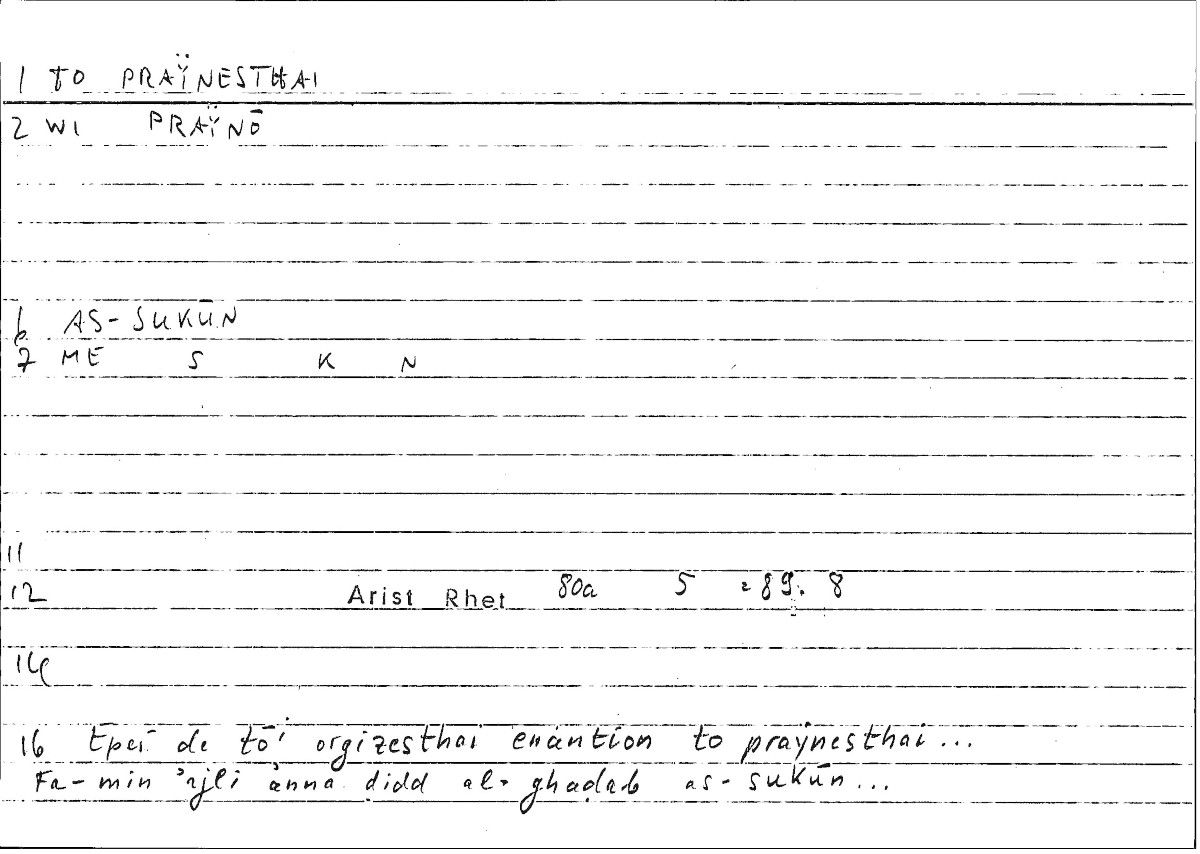 1 TO PRAŸNESTHAI
2 WI PRAŸNŌ
6 AS-SUKŪN
7 ME S K N
11
12 Arist Rhet 80a 5 = 89. 8
14
16 Epeì de tō' orgizesthai enantion to praÿnesthai...
Fa-min 'ajli anna ḍidd al-ghaḍab as-sukūn...